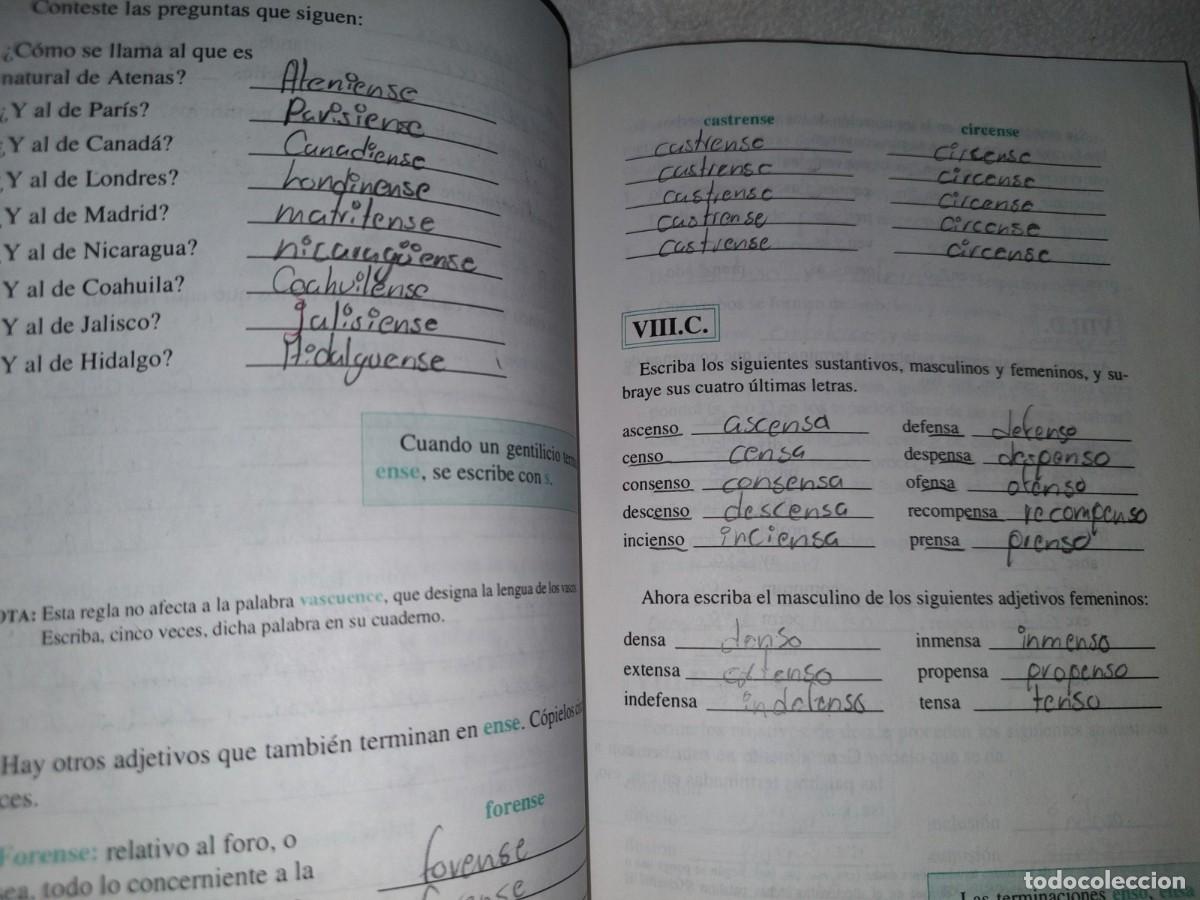 Conteste las preguntas que siguen:
¿Cómo se llama al que es
natural de Atenas? Ateniense
¿Y al de París? Parisiense
¿Y al de Canadá? Canadiense
Y al de Londres? londinense
Y al de Madrid? matritense
Y al de Nicaragua? nicaragüense
Y al de Coahuila? Coahuilense
Y al de Jalisco? jalisiense
Y al de Hidalgo? Hidalguense
Cuando un gentilicio
ense, se escribe con s.
OTA: Esta regla no afecta a la palabra vascuence, que designa la lengua de los vascos
Escriba, cinco veces, dicha palabra en su cuaderno.
Hay otros adjetivos que también terminan en ense. Cópielos
ces.
forense
Forense: relativo al foro, o forense
sea, todo lo concerniente a la
castrense circense
castrense circense
castrense circense
castrense circense
castrense circense
castrense circense
VIII.C.
Escriba los siguientes sustantivos, masculinos y femeninos, y su-
braye sus cuatro últimas letras.
ascenso ascensa defensa defenso
censo censa despensa despenso
consenso consensa ofensa ofenso
descenso descensa recompensa recompenso
incienso inciensa prensa prenso
Ahora escriba el masculino de los siguientes adjetivos femeninos:
densa denso inmensa inmenso
extensa extenso propensa propenso
indefensa indefenso tensa tenso
Las terminaciones enso, ensa
todocoleccion